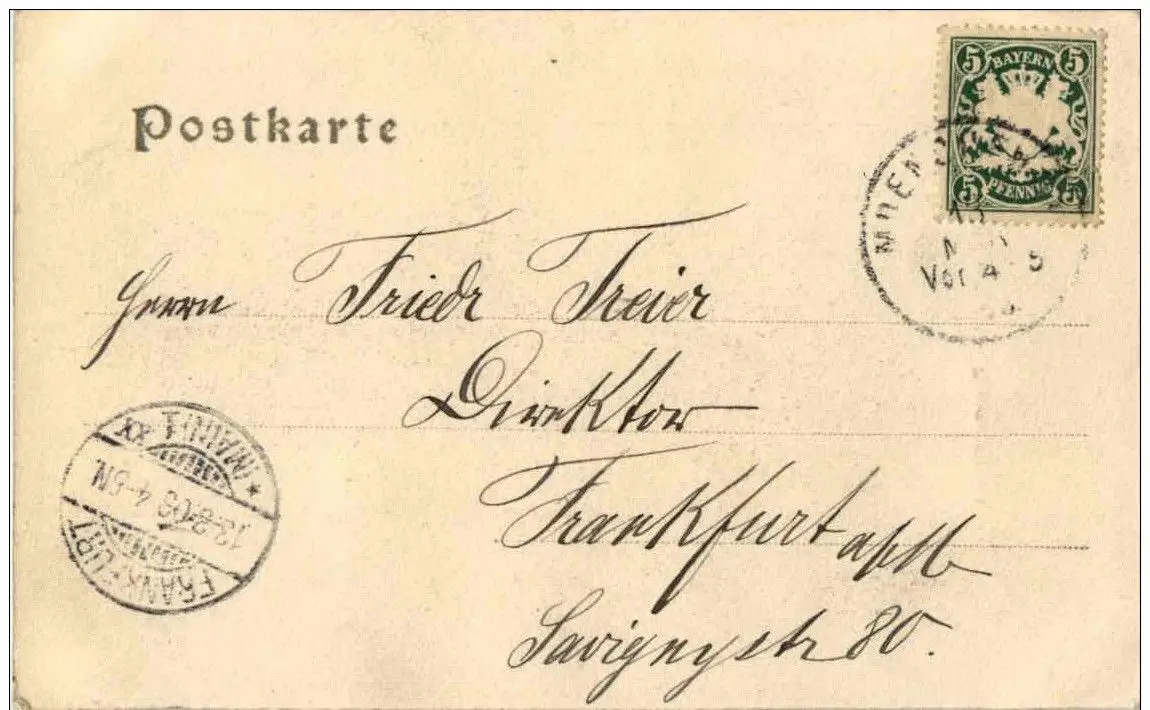 Postkarte
5 BAYERN 5
5 PFENNIG 5
Vor. 4-5
Herrn Friedr Freier
Direktor
Frankfurt a/M
Savignystr 80.
FRANKFURT
4-5N.
* (MAIN) 1 XX